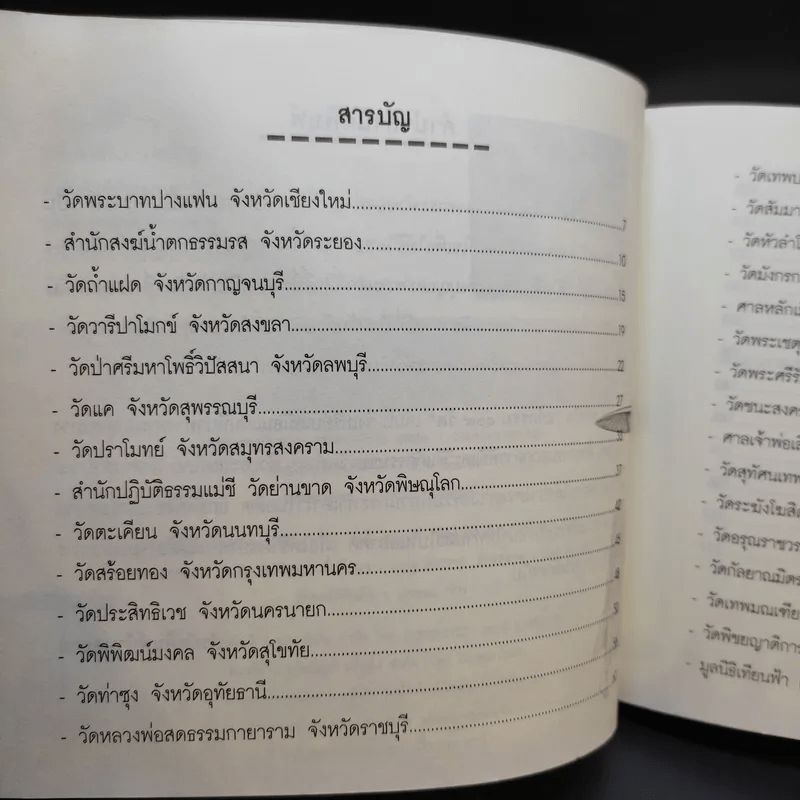 สารบัญ
- วัดพระบาทปางแฟน จังหวัดเชียงใหม่ 7
- สำนักสงฆ์น้ำตกธรรมรส จังหวัดระยอง 10
- วัดถ้ำแฝด จังหวัดกาญจนบุรี 15
- วัดวารีปาโมกข์ จังหวัดสงขลา 19
- วัดป่าศรีมหาโพธิ์วิปัสสนา จังหวัดลพบุรี 22
- วัดแค จังหวัดสุพรรณบุรี 27
- วัดปราโมทย์ จังหวัดสมุทรสงคราม
- สำนักปฏิบัติธรรมแม่ชี วัดย่านขาด จังหวัดพิษณุโลก 37
- วัดตะเคียน จังหวัดนนทบุรี
- วัดสร้อยทอง จังหวัดกรุงเทพมหานคร
- วัดประสิทธิเวช จังหวัดนครนายก
- วัดพิพิฒน์มงคล จังหวัดสุโขทัย
- วัดท่าซุง จังหวัดอุทัยธานี
- วัดหลวงพ่อสดธรรมกายาราม จังหวัดราชบุรี
- วัดเทพ
- วัดสัมมา
- วัดหัวลำโ
- วัดมังกรก
- ศาลหลักเ
- วัดพระเชตุ
- วัดพระศรีรั
- วัดชนะสงค
- ศาลเจ้าพ่อเสื
- วัดสุทัศนเทพ
- วัดระฆังโฆสิต
- วัดอรุณราชวร
- วัดกัลยาณมิตร
- วัดเทพมณเฑีย
- วัดพิชยญาติการ
- มูลนิธิเทียนฟ้า